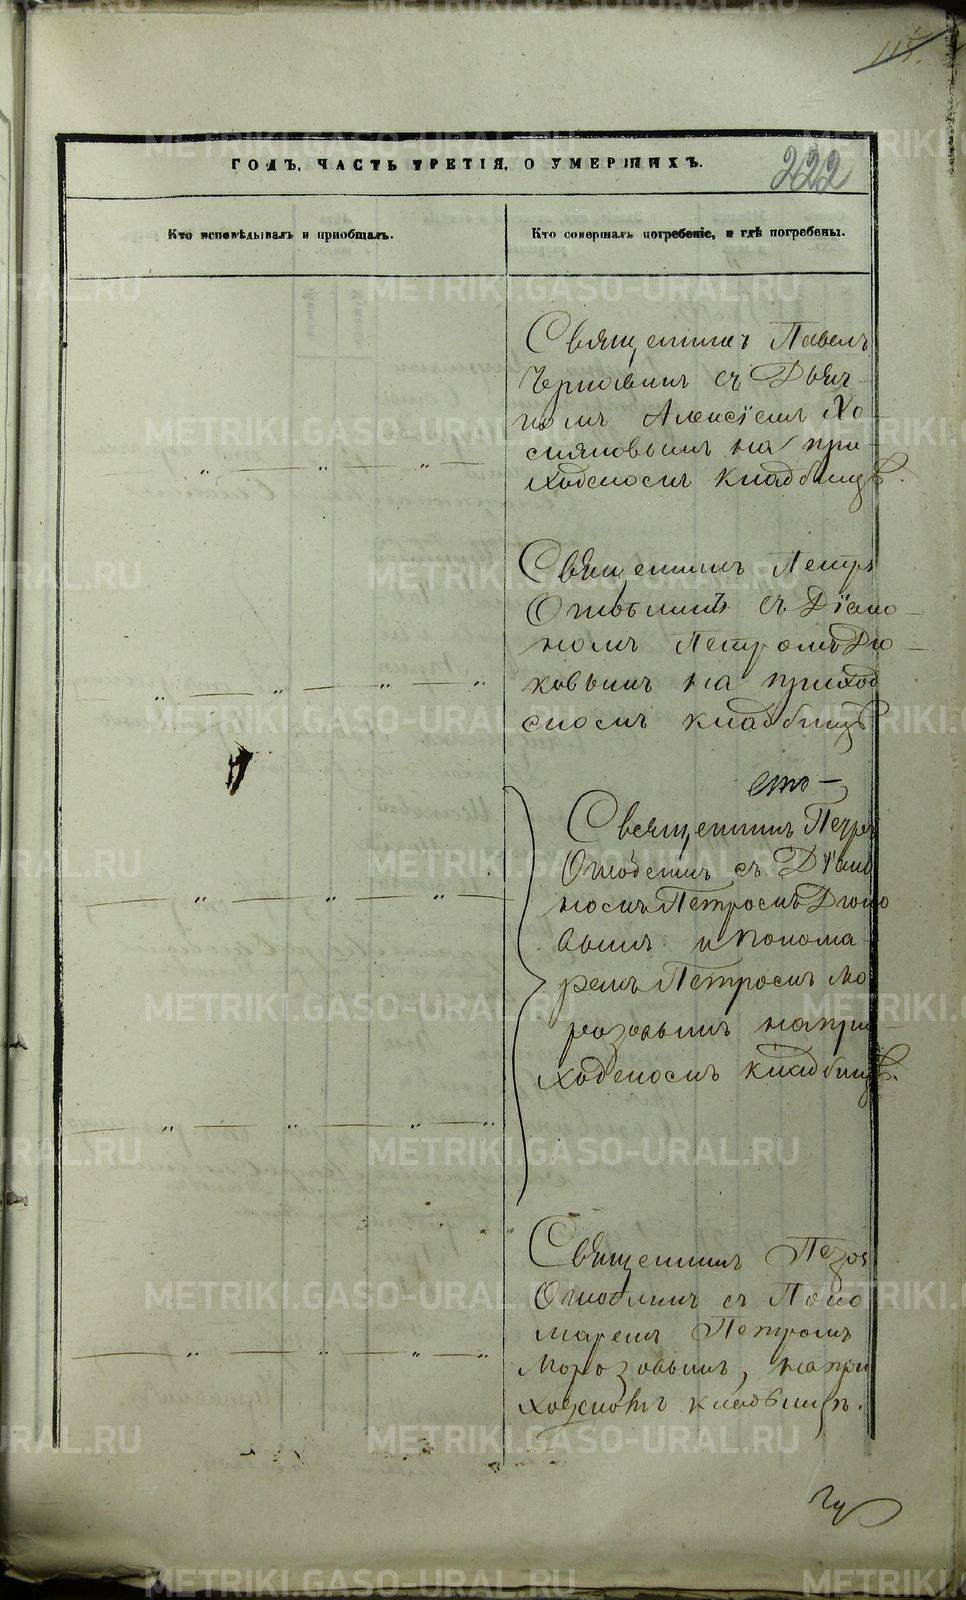 115.
222
ГОДЪ, ЧАСТЬ ТРЕТІЯ, О УМЕРШИХЪ.
Кто исповѣдывалъ и пріобщалъ.
Кто совершалъ погребеніе, и гдѣ погребены.
Священникъ Павелъ
съ Дьяч-
комъ Алексіемъ Хо-
на при-
ходскомъ кладбищѣ.
Священникъ Петръ
съ Діако-
номъ Петромъ Дю-
ковымъ на приход
скомъ кладбищѣ
Священникъ Петръ
съ Діако
номъ Петромъ Дюко
вымъ и понома-
ремъ Петромъ Мо
розовымъ на при-
ходскомъ кладбищѣ.
Священникъ Петръ
съ Поно
маремъ Петромъ
Морозовымъ, на при
ходскомъ кладбищѣ.
METRIKI.GASO-URAL.RU